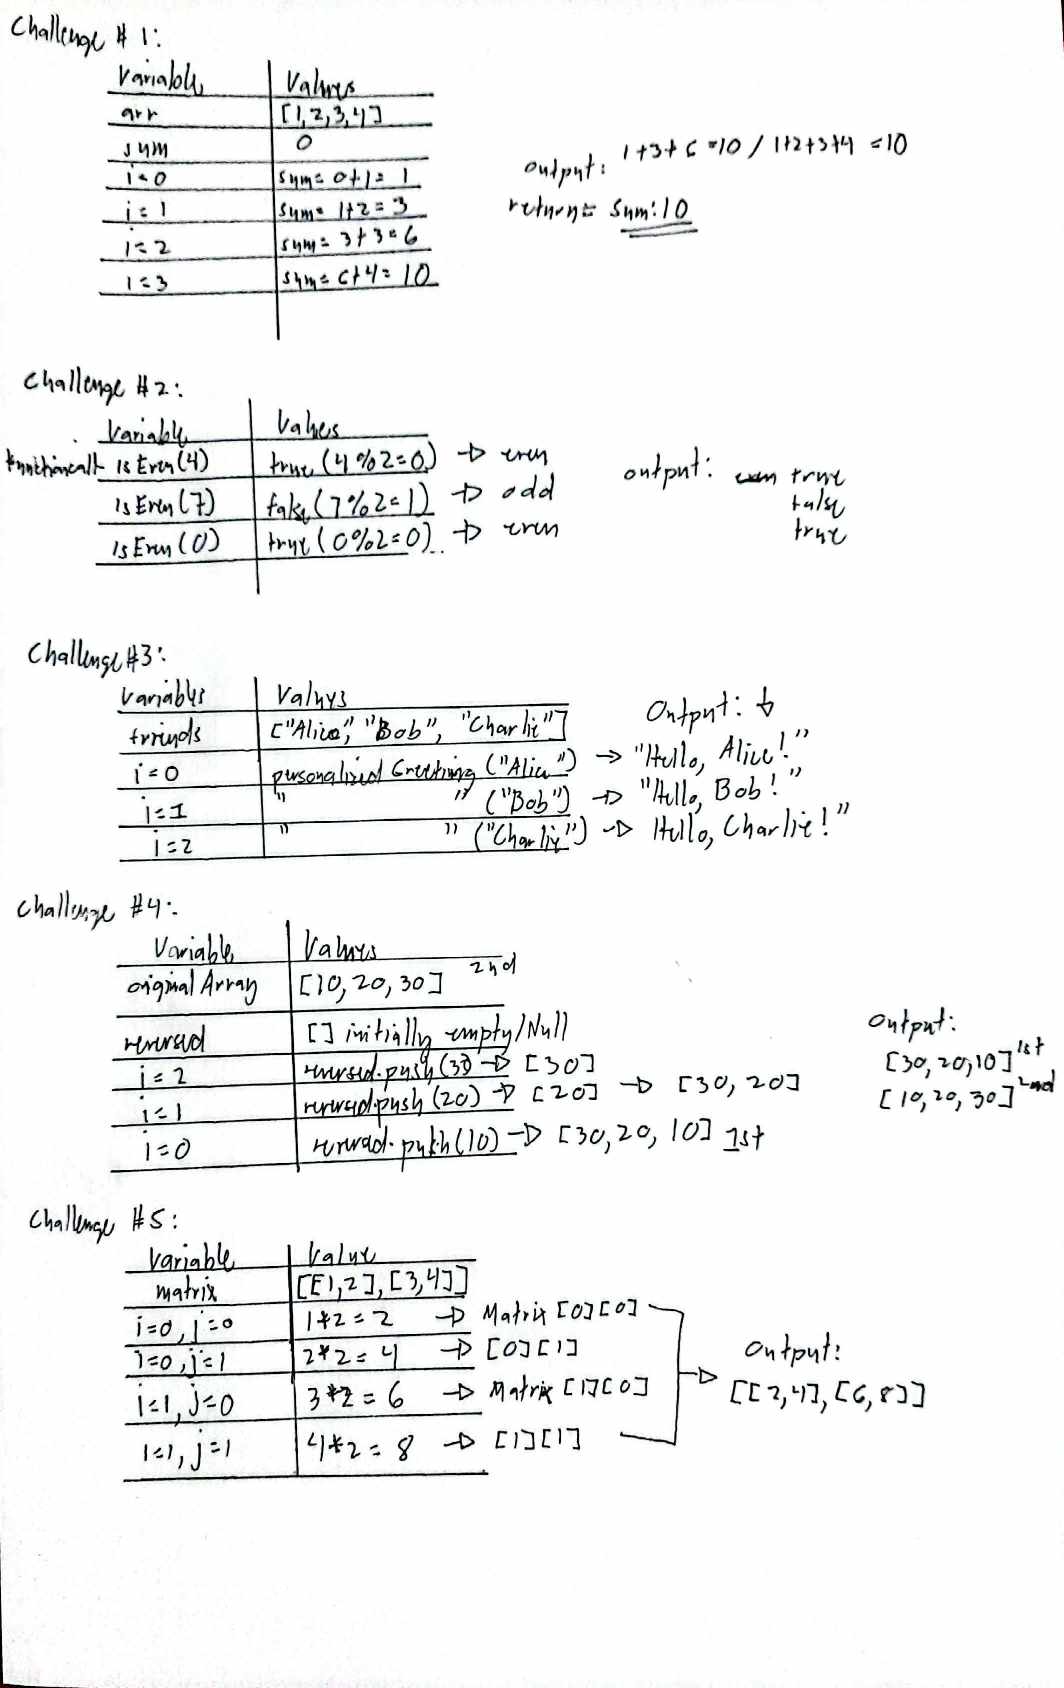 Challenge # 1:
Variable Values
arr [1,2,3,4]
sum 0
i=0 sum= 0+1= 1
i=1 sum= 1+2=3
i=2 sum= 3+3=6
i=3 sum= 6+4= 10
output: 1+3+6=10 / 1+2+3+4 =10
return= sum:10
Challenge #2:
Variable Values
isEven(4) true (4%2=0) → even
isEven(7) false (7%2=1) → odd
isEven(0) true (0%2=0) → even
output: true
false
true
Challenge #3:
Variables Values
friends ["Alice", "Bob", "Charlie"]
i=0 personalized Greeting ("Alice") → "Hello, Alice!"
i=1 " " ("Bob") → "Hello, Bob!"
i=2 " " ("Charlie") → Hello, Charlie!"
Output: ↓
Challenge #4:
Variable Values
original Array [10, 20, 30] 2nd
reversed [] initially empty/Null
i=2 reversed.push(30 → [30]
i=1 reversed.push(20) → [20] → [30, 20]
i=0 → [30, 20, 10] 1st
Output:
[30, 20, 10] 1st
[10, 20, 30] 2nd
Challenge #5:
Variable Value
matrix [[1,2],[3,4]]
i=0, j=0 1*2=2 → Matrix [0][0]
i=0, j=1 2*2=4 → [0][1]
i=1, j=0 3*2=6 → Matrix [1][0]
i=1, j=1 4*2=8 → [1][1]
Output:
[[2,4],[6,8]]